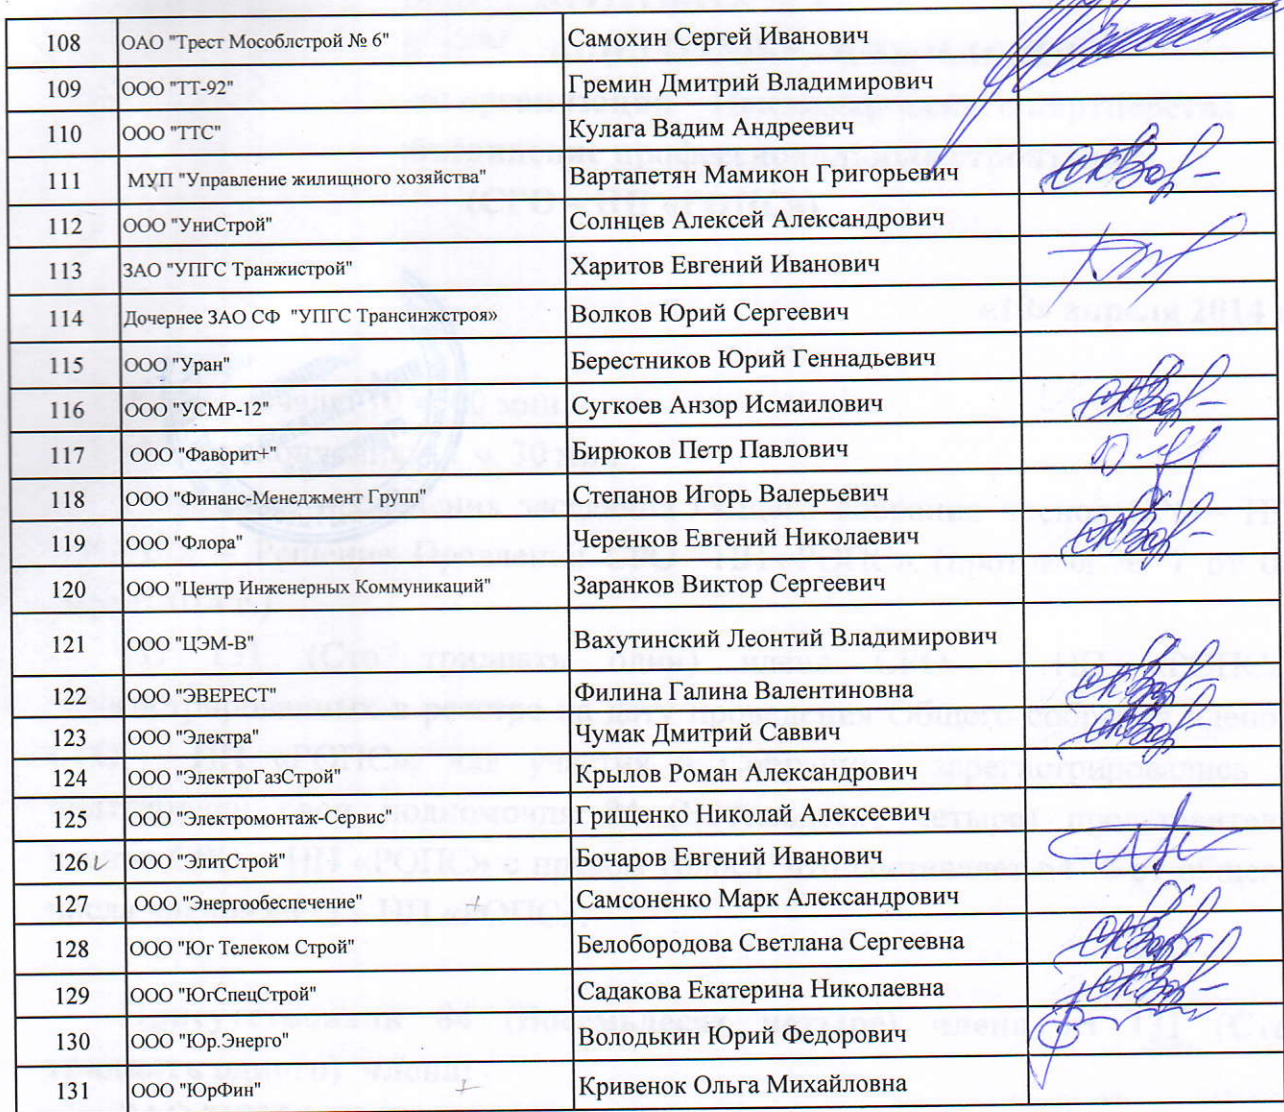 108 ОАО "Трест Мособлстрой № 6" Самохин Сергей Иванович
109 ООО "ТТ-92" Гремин Дмитрий Владимирович
110 ООО "ТТС" Кулага Вадим Андреевич
111 МУП "Управление жилищного хозяйства" Вартапетян Мамикон Григорьевич
112 ООО "УниСтрой" Солнцев Алексей Александрович
113 ЗАО "УПГС Транжистрой" Харитов Евгений Иванович
114 Дочернее ЗАО СФ "УПГС Трансинжстроя» Волков Юрий Сергеевич
115 ООО "Уран" Берестников Юрий Геннадьевич
116 ООО "УСМР-12" Сугкоев Анзор Исмаилович
117 ООО "Фаворит+" Бирюков Петр Павлович
118 ООО "Финанс-Менеджмент Групп" Степанов Игорь Валерьевич
119 ООО "Флора" Черенков Евгений Николаевич
120 ООО "Центр Инженерных Коммуникаций" Заранков Виктор Сергеевич
121 ООО "ЦЭМ-В" Вахутинский Леонтий Владимирович
122 ООО "ЭВЕРЕСТ" Филина Галина Валентиновна
123 ООО "Электра" Чумак Дмитрий Саввич
124 ООО "ЭлектроГазСтрой" Крылов Роман Александрович
125 ООО "Электромонтаж-Сервис" Грищенко Николай Алексеевич
126 ООО "ЭлитСтрой" Бочаров Евгений Иванович
127 ООО "Энергообеспечение" Самсоненко Марк Александрович
128 ООО "Юг Телеком Строй" Белобородова Светлана Сергеевна
129 ООО "ЮгСпецСтрой" Садакова Екатерина Николаевна
130 ООО "Юр.Энерго" Володькин Юрий Федорович
131 ООО "ЮрФин" Кривенок Ольга Михайловна